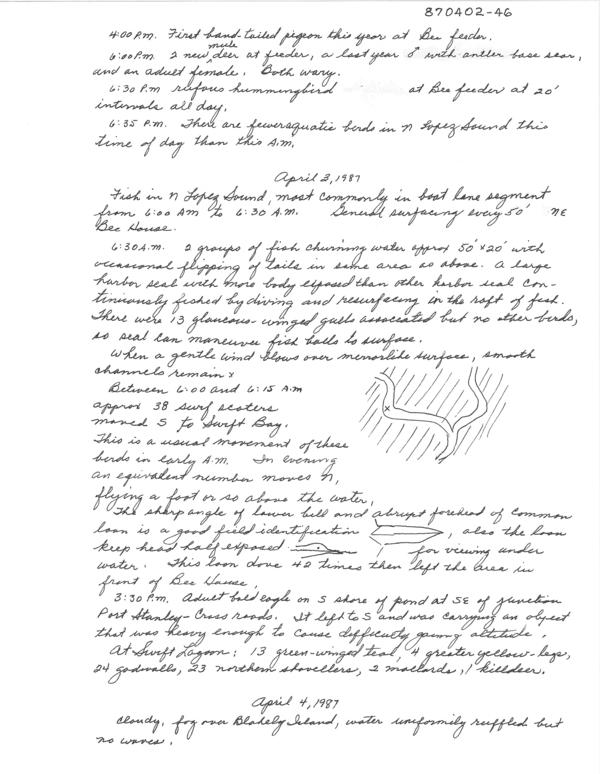 870402-46
4:00 P.M. First band-tailed pigeon this year at Bee feeder.
6:00 P.M. 2 new mule deer at feeder, a last year ♂ with antler base scar,
and an aduet female. Both wary.
6:30 P.M rufous hummingbird at Bee feeder at 20'
intervals all day.
6:35 P.M. There are fewer aquatic birds in N Lopez Sound this
time of day than this A.M.
April 3, 1987
Fish in N Lopez Sound, most commonly in boat lane segment
from 6:00 AM to 6:30 A.M. General surfacing every 50' NE
Bee House.
6:30 A.M. 2 groups of fish churning water approx 50' x 20' with
occasional flipping of tails in same area as above. A large
harbor seal with more body exposed than other harbor seal con-
tiniously fished by diving and resurfacing in the raft of fish.
There were 13 glaucous-winged gulls associated but no other birds,
so seal can maneuver fish balls to surface.
When a gentle wind blows over mirrorlike surface, smooth
channels remain x
Between 6:00 and 6:15 A.M
approx 38 surf scoters
moved S to Swift Bay.
This is a usual movement of these
birds in early A.M. In evening
an equivalent number moves N,
flying a foot or so above the water,
The sharp angle of lower bill and abrupt forehead of common
loon is a good field identification , also the loon
keep head half exposed for viewing under
water. This loon dove 42 times then left the area in
front of Bee House,
3:30 P.M. Aduet bald eagle on S shore of pond at SE of junction
Port Stanley-Cross roads. It left to S and was carrying an object
that was heavy enough to cause difficulty gaining altitude.
At Swift Lagoon: 13 green-winged teal, 4 greater yellow-legs,
24 gadwalls, 23 northern shovellers, 2 mallards, 1 killdeer.
April 4, 1987
Cloudy, fog over Blakely Island, water uniformily ruffled but
no waves.